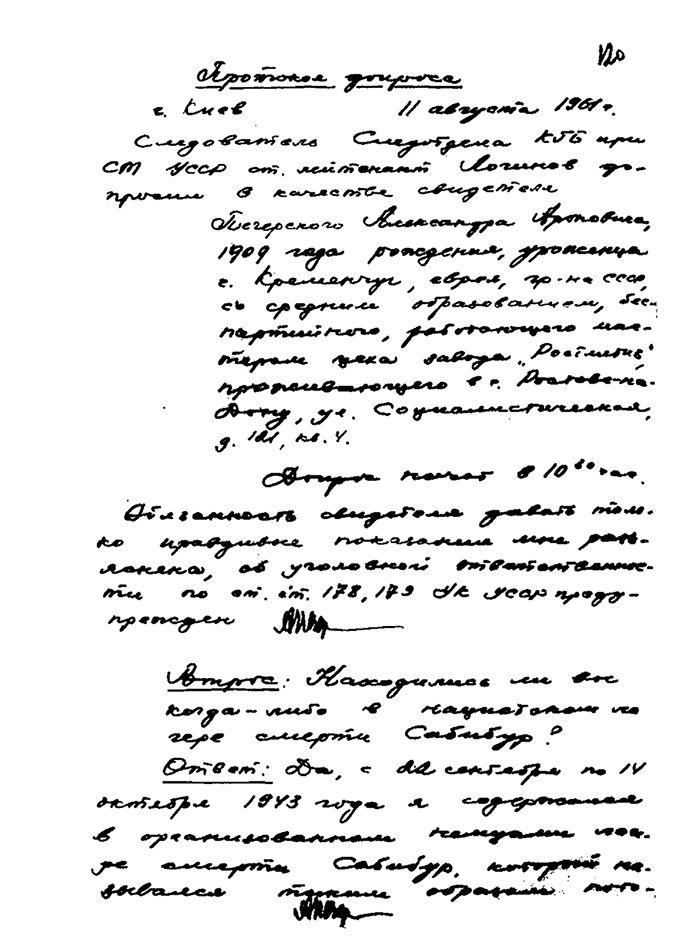 120
Протокол допроса
г. Киев 11 августа 1961 г.
Следователь Следотдела КГБ при
СМ УССР ст. лейтенант Логинов до-
просил в качестве свидетеля
Печерского Александра Ароновича,
1909 года рождения, уроженца
г. Кременчуг, еврея, гр-на СССР,
со средним образованием, бес-
партийного, работающего мас-
тером цеха завода „Ростметиз",
проживающего в г. Ростове-на-
Дону, ул. Социалистическая,
д. 121, кв. 4.
Допрос начат в 10 час.
Обязанность свидетеля давать толь-
ко правдивые показания мне разъ-
яснена, об уголовной ответственнос-
ти по ст. ст. 178, 179 УК УССР преду-
прежден
Вопрос: Находились ли вы
когда-либо в нацистском ла
гере смерти Сабибур?
Ответ: Да, с 22 сентября по 14
октября 1943 года я содержался
в организованном немцами лаге-
ре смерти Сабибур, который на-
зывался таким образом пото-